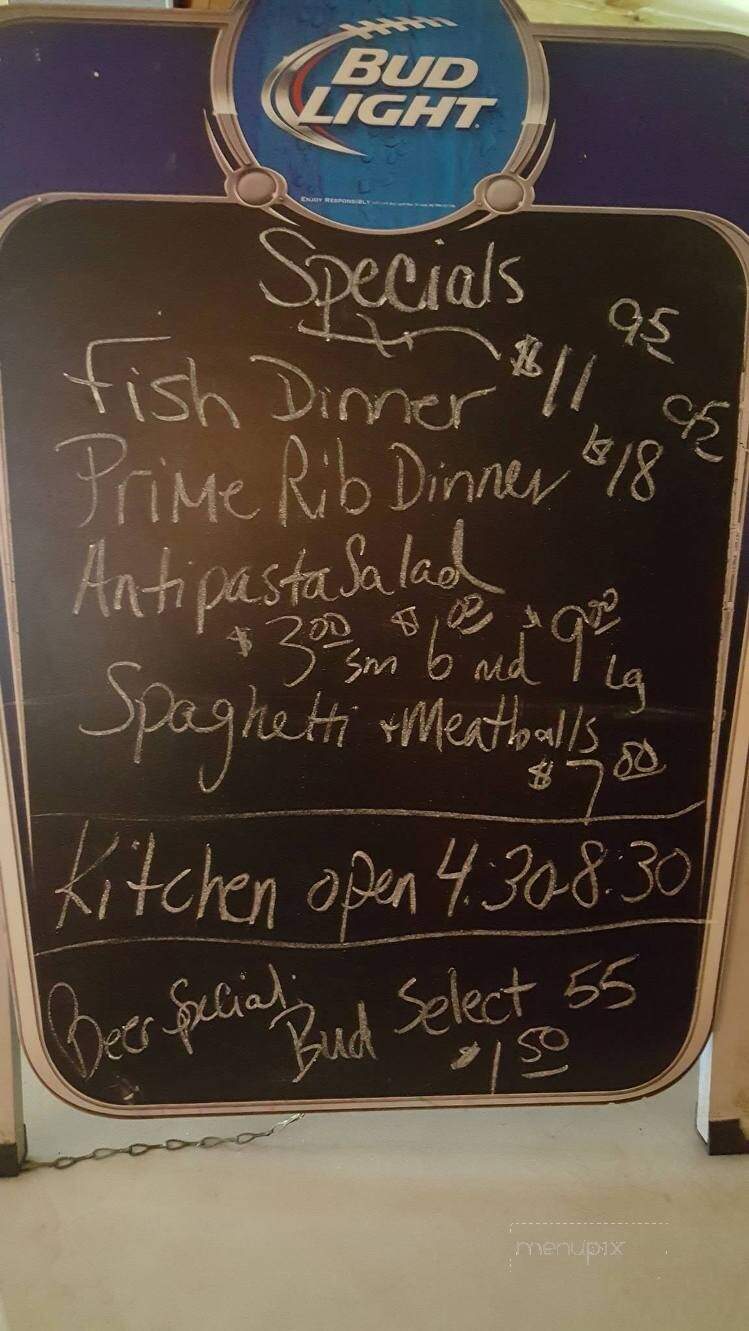 BUD
LIGHT
ENJOY RESPONSIBLY
Specials
Fish Dinner $11 95
Prime Rib Dinner $18 95
Antipasta Salad
$3 00 sm $6 00 md $9 00 Lg
Spaghetti + Meatballs
$7 00
Kitchen open 4:30-8:30
Beer Special: Bud Select 55
$1 50
menupix